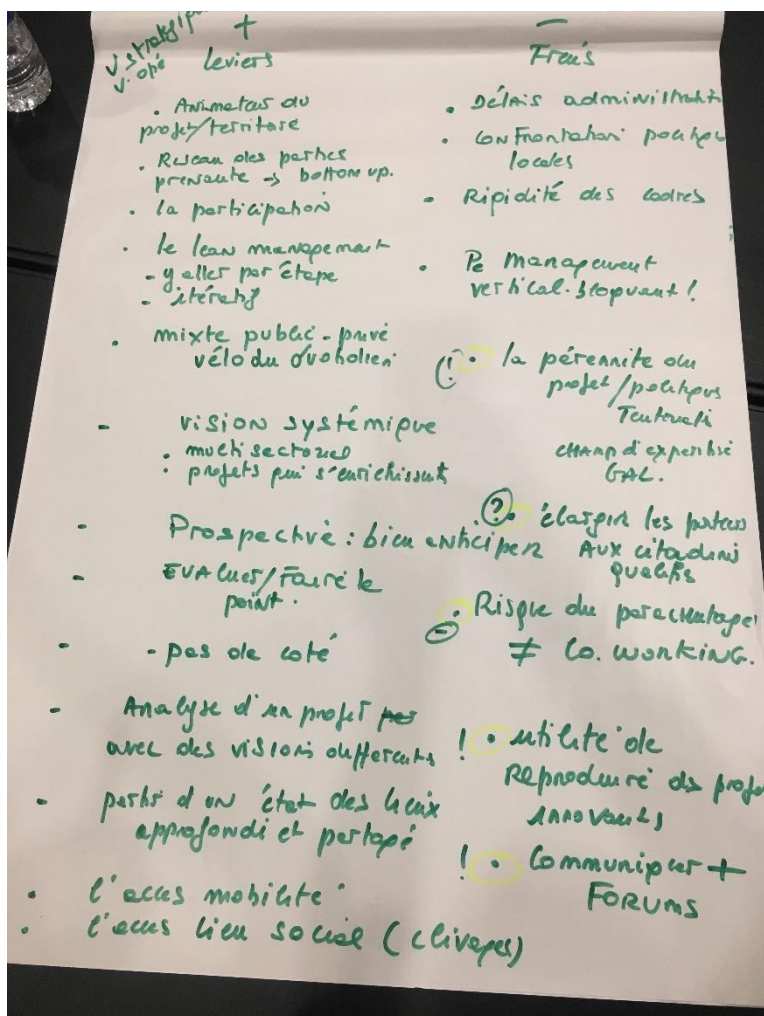 V. stratégiq
V. opé
+
leviers
. Animateur du
projet/territoire
. Réseau des parties
prenante → bottom up.
. la participation
. le lean management
- y aller par étape
- itératif
. mixte public - privé
vélo du
- vision systémique
. multi sectoriel
. projets qui s'enrichissent
- Prospective : bien anticiper
- Evaluer/Faire le
point.
- - pas de coté
- Analyse d'un projet
avec des visions differents
- partir d'un état des lieux
approfondi et partagé
. l'accus mobilité
. l'accus lien social (clivages)
−
Freins
. Délais administrati
. Confrontation politiqu
locales
- Rigidité des cadres
. Pe management
vertical. bloquant !
(! . la pérennite du
projet/politiques
CHAMP d'expertise
GAL.
? . élargir les porteurs
AUX citadins
. Risque du parachutage
- ≠ Co. WORKING.
! . utilité de
Reproduire ds proje
innovants
! . Communiquer +
FORUMS